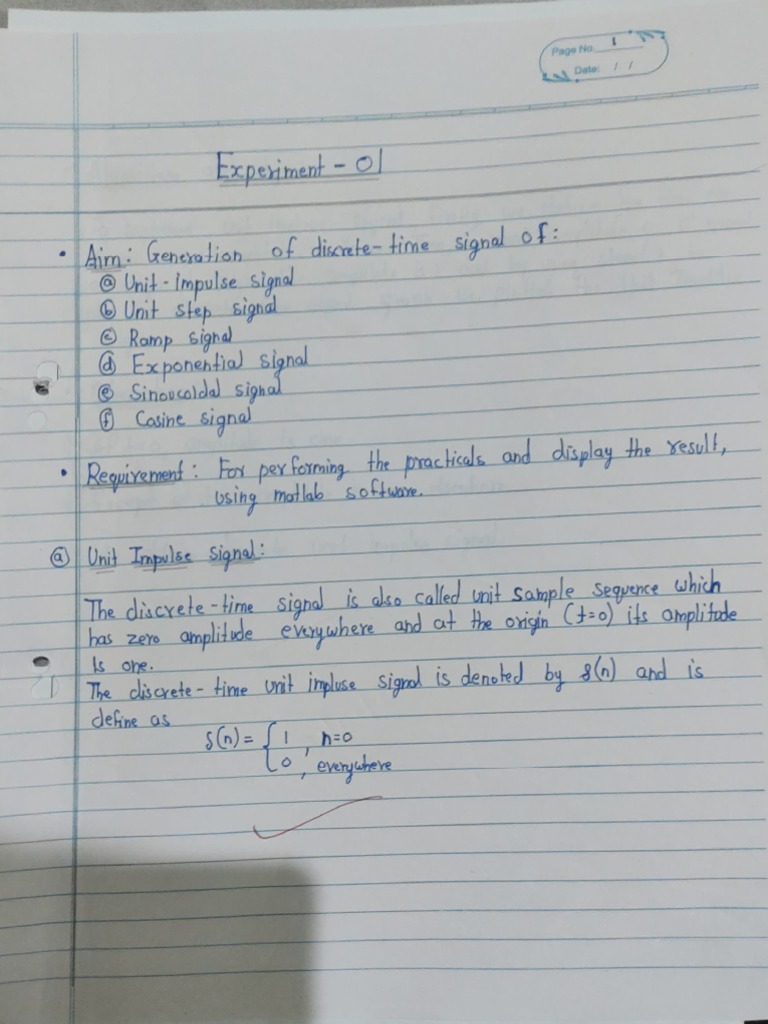 Page No. 1
Date: / /
Experiment - 01
• Aim: Generation of discrete-time signal of:
ⓐ Unit-impulse signal
ⓑ Unit step signal
ⓒ Ramp signal
ⓓ Exponential signal
ⓔ Sinoucoidal signal
ⓕ Cosine signal
• Requirement: For performing the practicals and display the result,
using matlab software.
ⓐ Unit Impulse signal:
The discrete-time signal is also called unit sample sequence which
has zero amplitude everywhere and at the origin (t=0) its amplitude
is one.
The discrete-time unit impluse signal is denoted by δ(n) and is
define as
δ(n) = { 1 , n=0
0 , everywhere